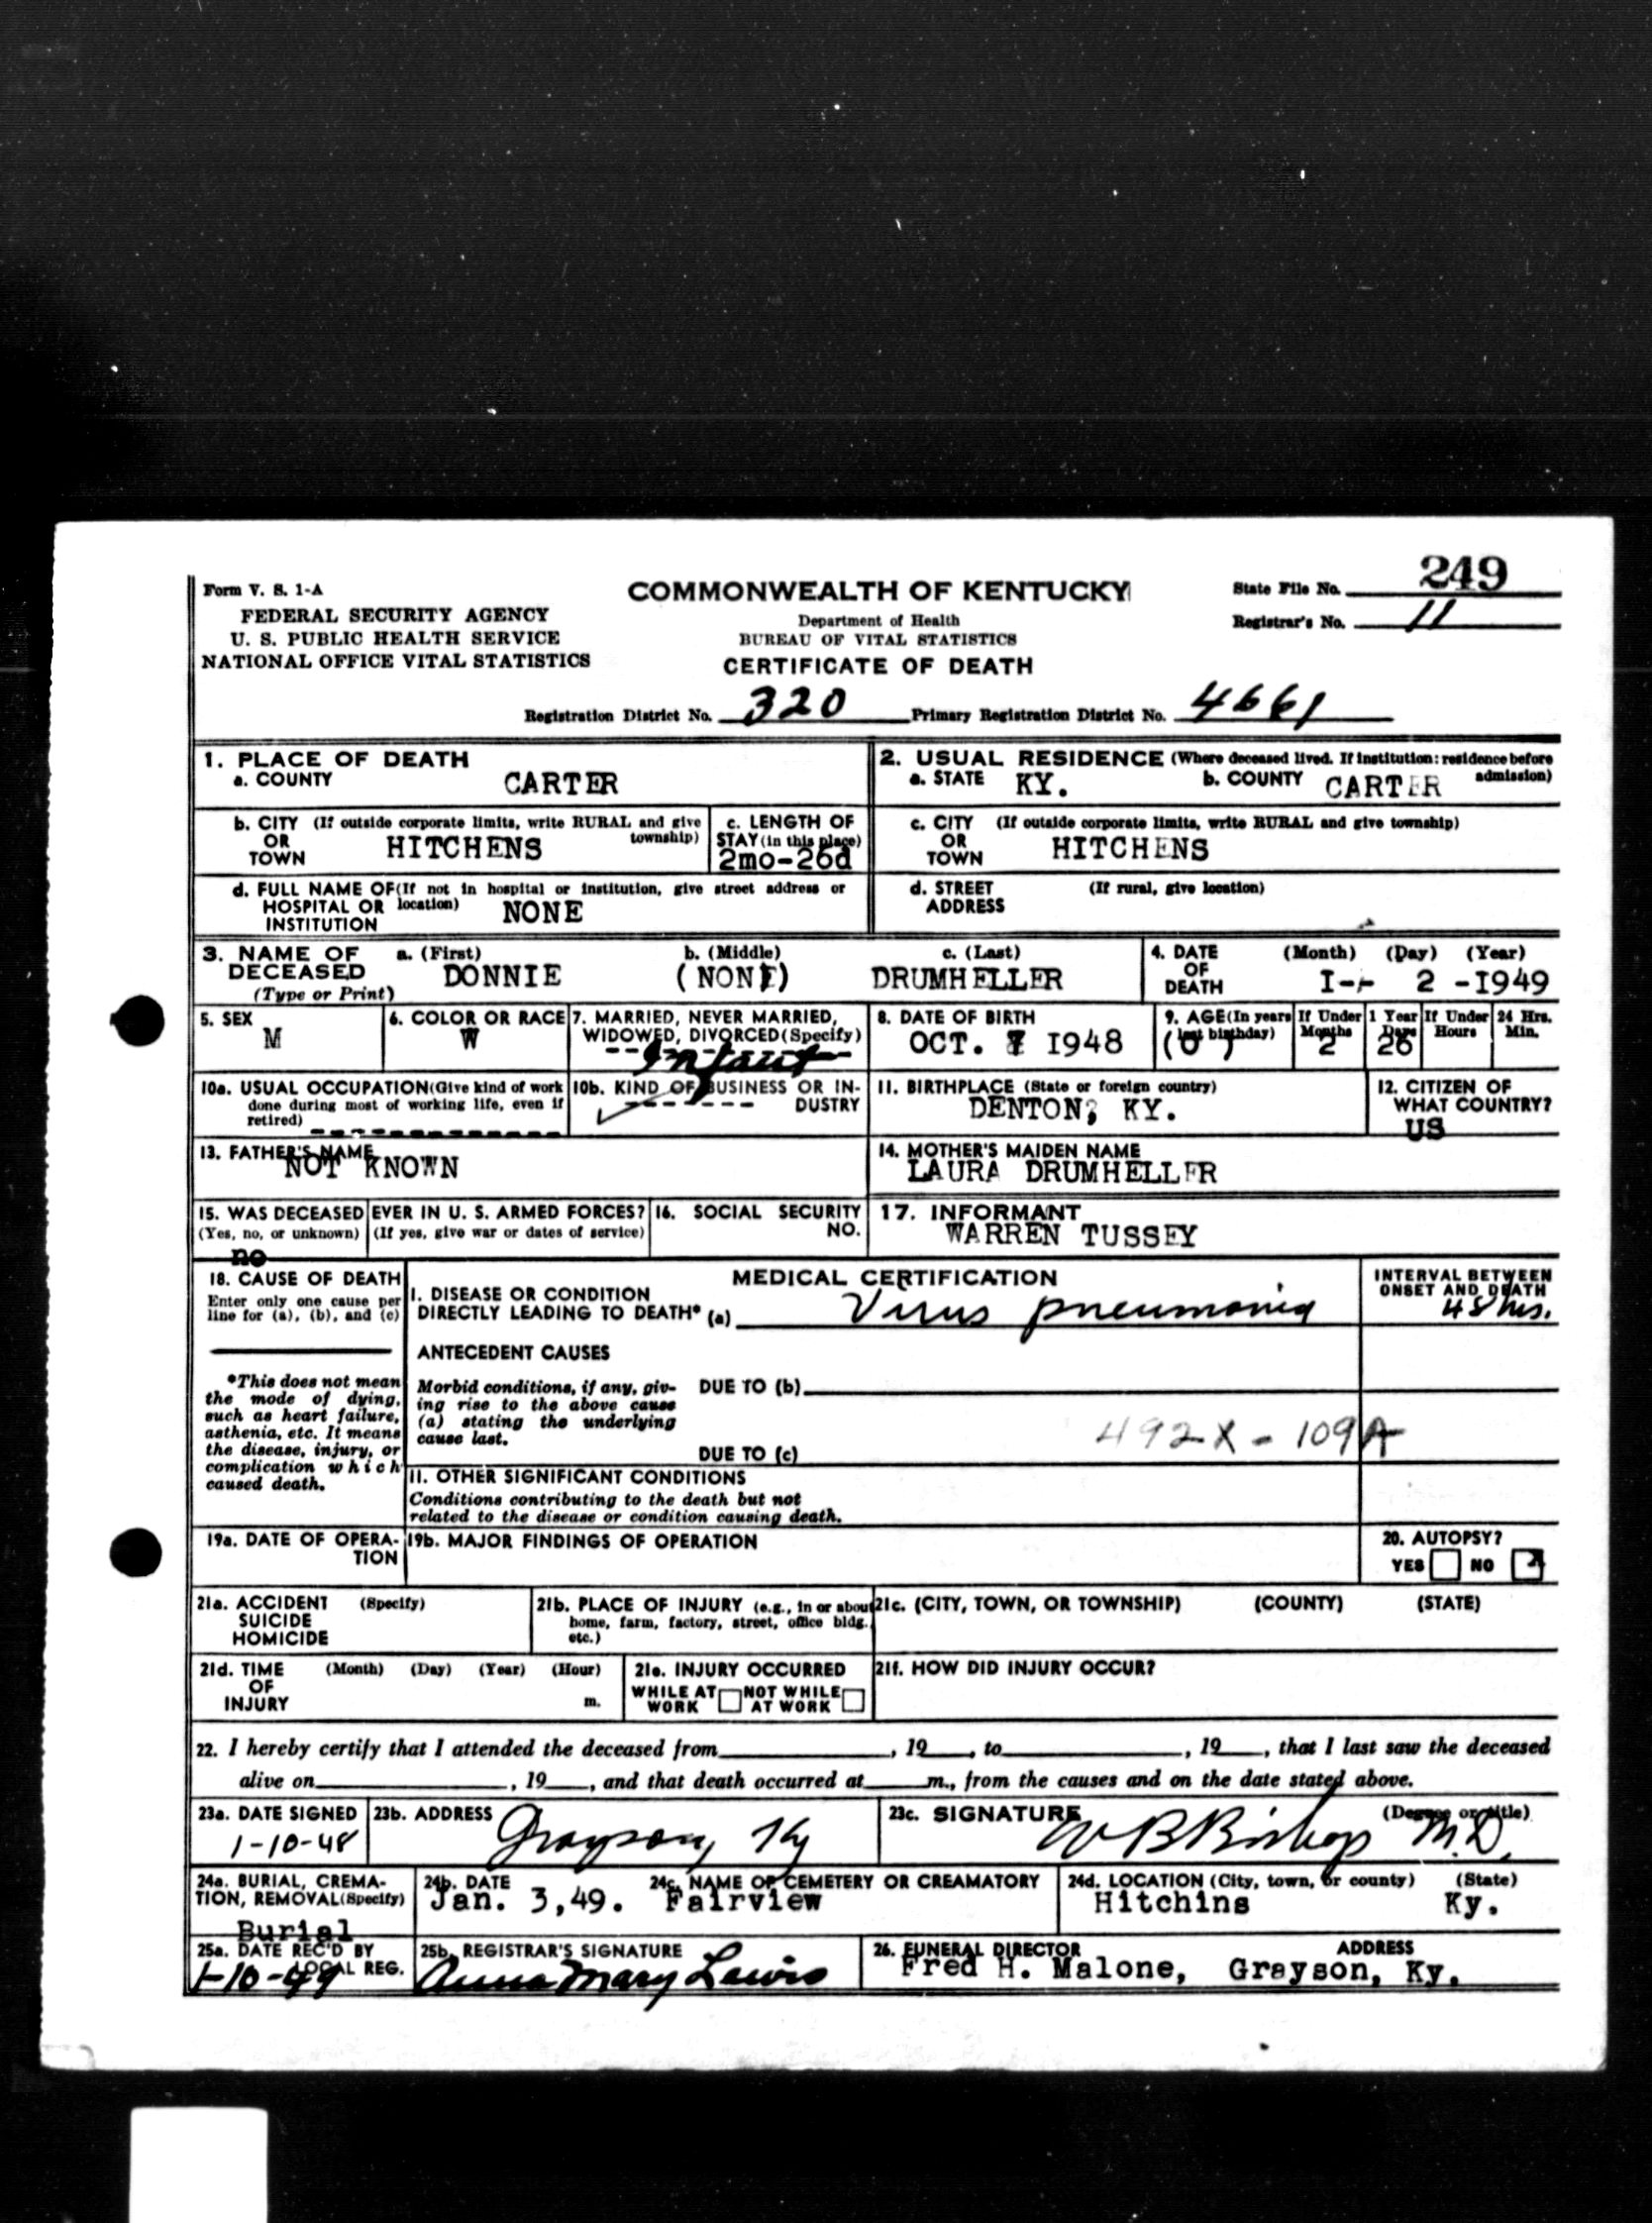 Form V. S. 1-A
FEDERAL SECURITY AGENCY
U. S. PUBLIC HEALTH SERVICE
NATIONAL OFFICE VITAL STATISTICS
COMMONWEALTH OF KENTUCKY
Department of Health
BUREAU OF VITAL STATISTICS
CERTIFICATE OF DEATH
State File No. 249
Registrar's No. 11
Registration District No. 320 Primary Registration District No. 4661
1. PLACE OF DEATH
a. COUNTY CARTER
2. USUAL RESIDENCE (Where deceased lived. If institution: residence before admission)
a. STATE KY. b. COUNTY CARTER
b. CITY (If outside corporate limits, write RURAL and give township)
OR
TOWN HITCHENS
c. LENGTH OF
STAY (in this place)
2mo-26d
c. CITY (If outside corporate limits, write RURAL and give township)
OR
TOWN HITCHENS
d. FULL NAME OF (If not in hospital or institution, give street address or
HOSPITAL OR location)
INSTITUTION NONE
d. STREET (If rural, give location)
ADDRESS
3. NAME OF a. (First) b. (Middle) c. (Last)
DECEASED DONNIE (NONE) DRUMHELLER
(Type or Print)
4. DATE (Month) (Day) (Year)
OF
DEATH I-- 2 -I949
5. SEX
M
6. COLOR OR RACE
W
7. MARRIED, NEVER MARRIED,
WIDOWED, DIVORCED (Specify)
Infant
8. DATE OF BIRTH
OCT. 7 I948
9. AGE (In years
last birthday)
(0 )
If Under 1 Year
Months Days
2 26
If Under 24 Hrs.
Hours Min.
10a. USUAL OCCUPATION (Give kind of work
done during most of working life, even if
retired) -------------
10b. KIND OF BUSINESS OR IN-
DUSTRY
-------
11. BIRTHPLACE (State or foreign country)
DENTON, KY.
12. CITIZEN OF
WHAT COUNTRY?
US
13. FATHER'S NAME
NOT KNOWN
14. MOTHER'S MAIDEN NAME
LAURA DRUMHELLER
15. WAS DECEASED EVER IN U. S. ARMED FORCES?
(Yes, no, or unknown) (If yes, give war or dates of service)
no
16. SOCIAL SECURITY
NO.
17. INFORMANT
WARREN TUSSEY
18. CAUSE OF DEATH
Enter only one cause per
line for (a), (b), and (c)
*This does not mean
the mode of dying,
such as heart failure,
asthenia, etc. It means
the disease, injury, or
complication which
caused death.
MEDICAL CERTIFICATION
I. DISEASE OR CONDITION
DIRECTLY LEADING TO DEATH* (a) Virus pneumonia
INTERVAL BETWEEN
ONSET AND DEATH
48 hrs.
ANTECEDENT CAUSES
Morbid conditions, if any, giv-
ing rise to the above cause
(a) stating the underlying
cause last.
DUE TO (b)
492X - 109A
DUE TO (c)
II. OTHER SIGNIFICANT CONDITIONS
Conditions contributing to the death but not
related to the disease or condition causing death.
19a. DATE OF OPERA-
TION
19b. MAJOR FINDINGS OF OPERATION
20. AUTOPSY?
YES NO X
21a. ACCIDENT (Specify)
SUICIDE
HOMICIDE
21b. PLACE OF INJURY (e.g., in or about
home, farm, factory, street, office bldg.,
etc.)
21c. (CITY, TOWN, OR TOWNSHIP) (COUNTY) (STATE)
21d. TIME (Month) (Day) (Year) (Hour)
OF
INJURY m.
21e. INJURY OCCURRED
WHILE AT NOT WHILE
WORK AT WORK
21f. HOW DID INJURY OCCUR?
22. I hereby certify that I attended the deceased from , 19 , to , 19 , that I last saw the deceased
alive on , 19 , and that death occurred at m., from the causes and on the date stated above.
23a. DATE SIGNED
1-10-48
23b. ADDRESS
Grayson, Ky
23c. SIGNATURE (Degree or title)
W B Bishop M.D.
24a. BURIAL, CREMA-
TION, REMOVAL (Specify)
Burial
24b. DATE
Jan. 3,49.
24c. NAME OF CEMETERY OR CREAMATORY
Fairview
24d. LOCATION (City, town, or county) (State)
Hitchins Ky.
25a. DATE REC'D BY
LOCAL REG.
1-10-49
25b. REGISTRAR'S SIGNATURE
Anna Mary Lewis
26. FUNERAL DIRECTOR ADDRESS
Fred H. Malone, Grayson, Ky.